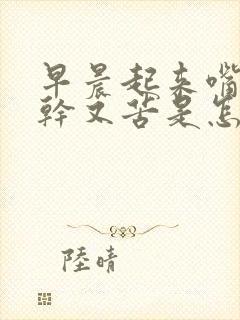 早晨起来嘴
幹又苦是怎
陸晴